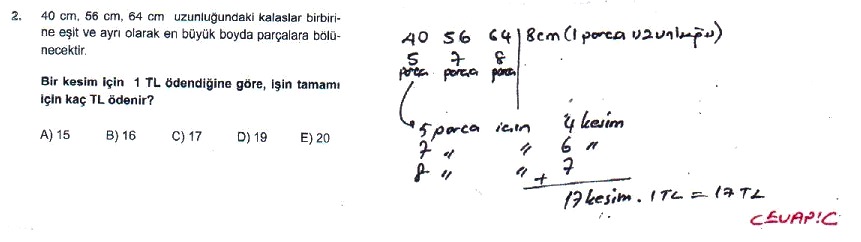 2. 40 cm, 56 cm, 64 cm uzunluğundaki kalaslar birbiri-
ne eşit ve ayrı olarak en büyük boyda parçalara bölü-
necektir.
Bir kesim için 1 TL ödendiğine göre, işin tamamı
için kaç TL ödenir?
A) 15 B) 16 C) 17 D) 19 E) 20
40 56 64 | 8cm (1 parca uzunluğu)
5 7 8
parca parca parca
5 parca icin 4 kesim
7 " " 6 "
8 " " + 7
17 kesim . 1TL = 17 TL
CEVAP: C